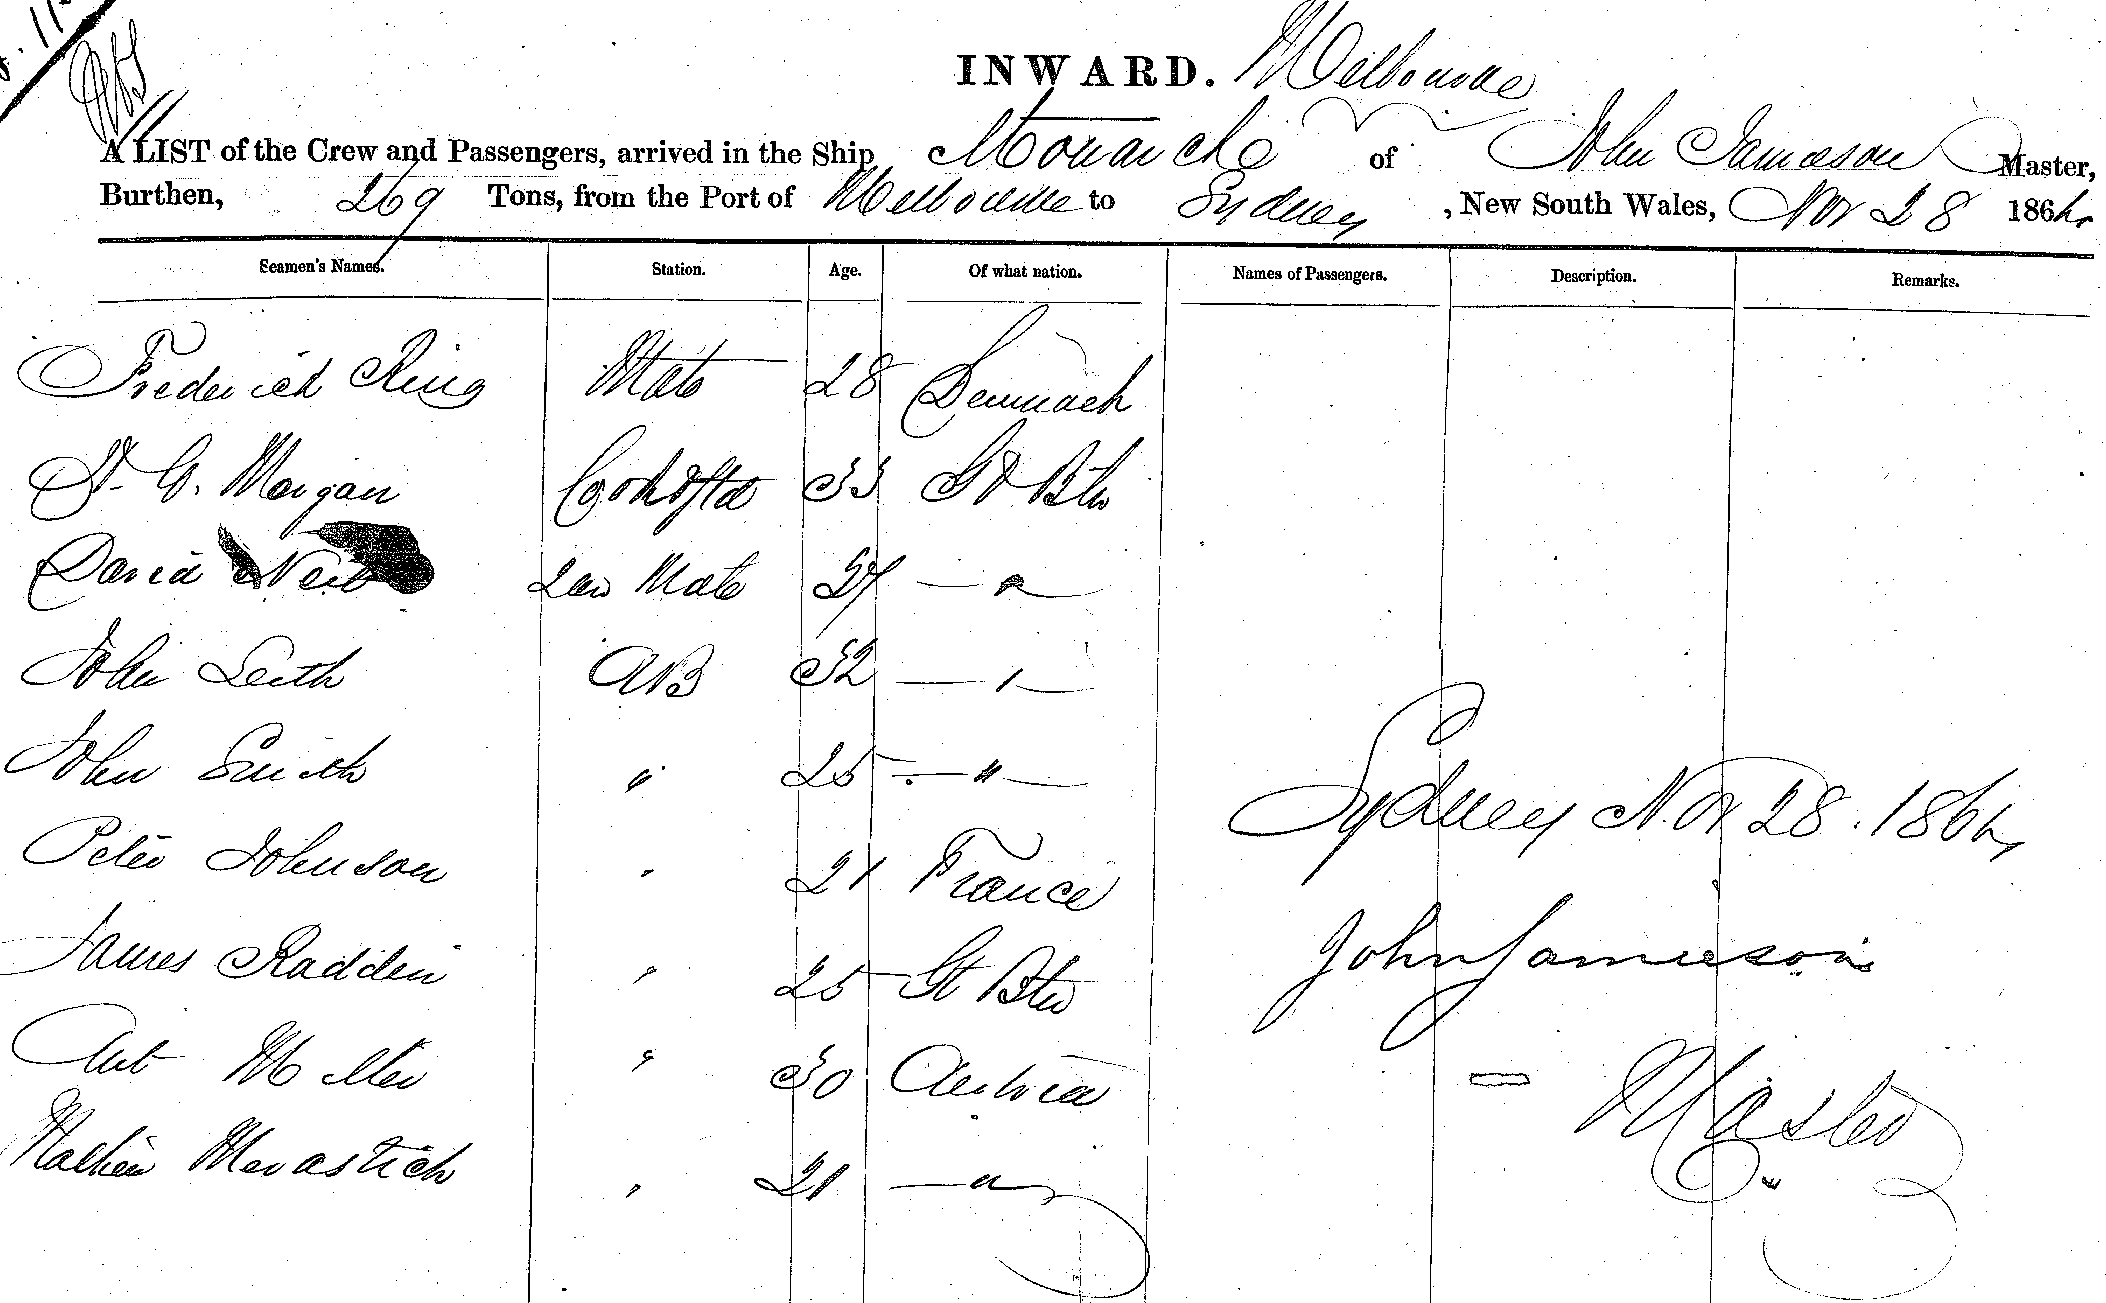 INWARD. Melbourne
A LIST of the Crew and Passengers, arrived in the Ship Monarch of John Jamieson Master,
Burthen, 269 Tons, from the Port of Melbourne to Sydney, New South Wales, Nov 28 1864
Seamen's Names. Station. Age. Of what nation. Names of Passengers. Description. Remarks.
Frederick Ring Mate 28 Denmark
G. Morgan Cook & Std 33 Gt Btn
David 2nd Mate 27 — " —
John Leith AB 32 — " —
John Smith " 25 — " —
Peter Johnson " 21 France
James Radden " 25 Gt Btn
Ant " 30 Austria
" 21 — " —
Sydney Nov 28. 1864
John Jamieson
— Master